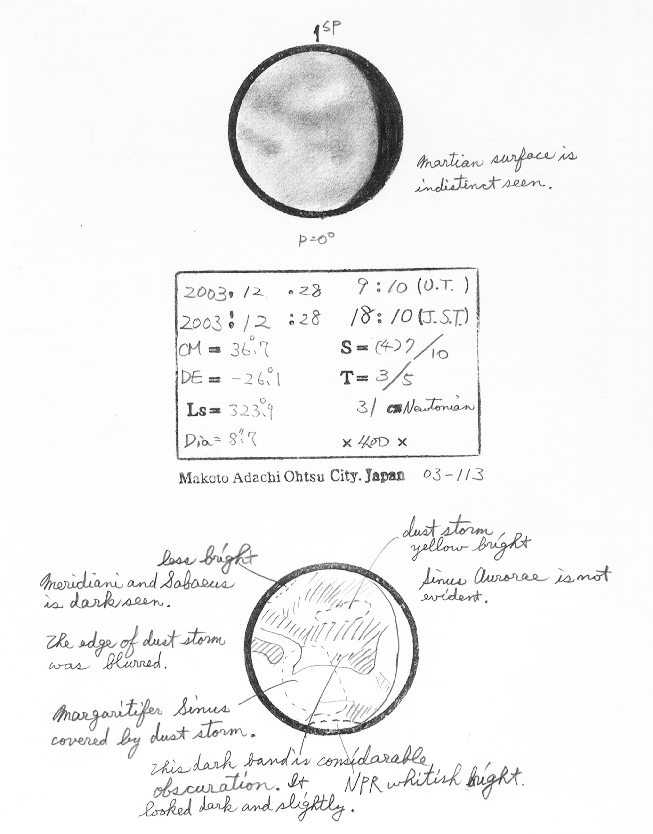 SP
Martian surface is
indistinct seen.
P=0°
2003. 12 . 28 9 : 10 (U.T. )
2003 : 12 : 28 18 : 10 (J.S.T.)
CM = 36.°7 S = (4) 7/10
DE = -26.°1 T = 3/5
Ls = 323.°9 31 cm Newtonian
Dia = 8."7 × 400 ×
Makoto Adachi Ohtsu City. Japan 03-113
dust storm
yellow bright
less bright
Meridiani and Sabaeus
is dark seen.
Sinus Aurorae is not
evident.
The edge of dust storm
was blurred.
Margaritifer Sinus
covered by dust storm.
This dark band is considarable
obscuration. It
looked dark and slightly.
NPR whitish bright.